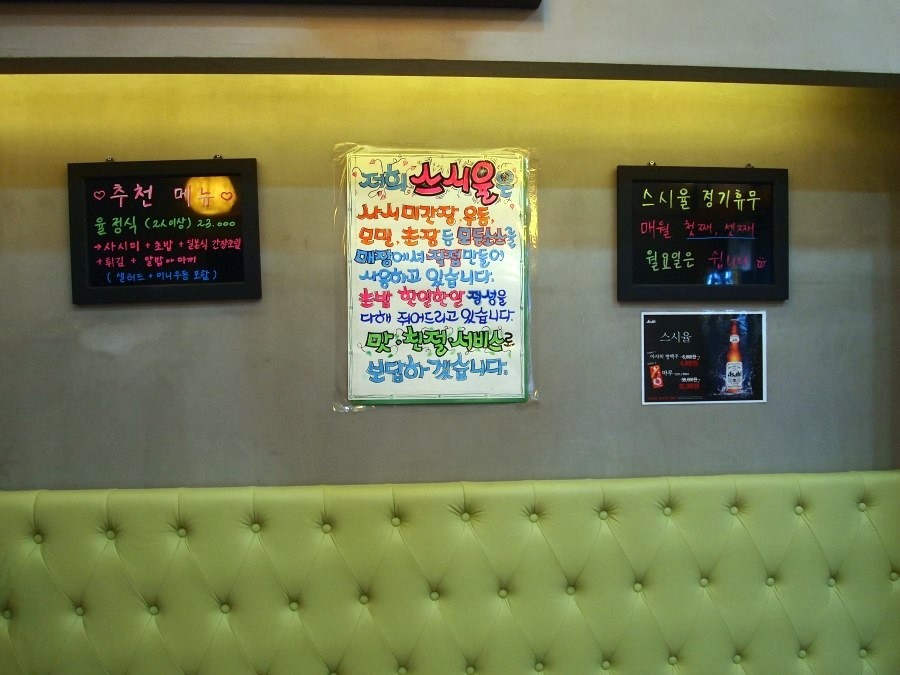 ♡추천 메뉴♡
율 정식 (2人이상) 23.000
→ 사시미 + 초밥 + 일본식 간장조림
+ 튀김 + 알밥 or 마끼
( 샐러드 + 미니우동 포함 )
저희 스시율은
사시미간장, 우동,
모밀, 초장 등 모든소스를
매장에서 직접만들어
사용하고 있습니다.
초밥 한알한알 정성을
다해 쥐어드리고 있습니다.
맛·친절·서비스로
보답하겠습니다.
스시율 정기휴무
매월 첫째, 셋째
월요일은 쉽니다
스시율
Asahi